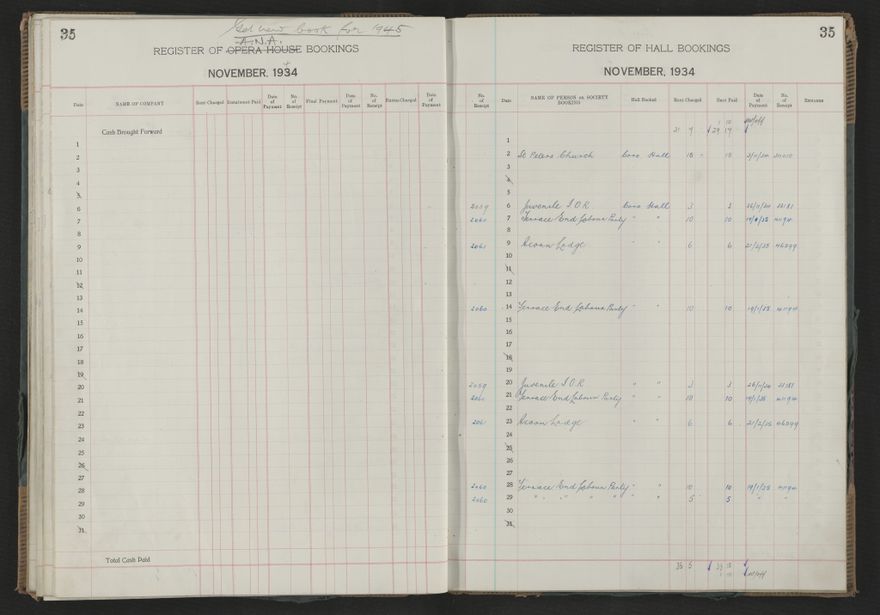 35
Get new book for 1945
A.N.A.
REGISTER OF OPERA HOUSE BOOKINGS
NOVEMBER, 1934
Date NAME OF COMPANY Rent Charged Instalment Paid Date of Payment No. of Receipt Final Payment Date of Payment No. of Receipt Date of Payment
Cash Brought Forward
1
2
3
4
5
6
7
8
9
10
11
12
13
14
15
16
17
18
19
20
21
22
23
24
25
26
27
28
29
30
31
Total Cash Paid
35
REGISTER OF HALL BOOKINGS
NOVEMBER, 1934
No. of Receipt Date NAME OF PERSON or SOCIETY BOOKING Hall Booked Rent Charged Rent Paid Date of Payment No. of Receipt REMARKS
1
2 St Peters Church Conc Hall 18 - 18
3
4
5
6 Juvenile I.O.R. Conc Hall 3 3 26/11/34
2060 7 Terrace End Labour Party " " 10 10
8
2061 9 Acorn Lodge " " 6 6 21/2/35 46299
10
11
12
13
2060 14 Terrace End Labour Party " " 10 10 19/1/35
15
16
17
18
19
2059 20 Juvenile I.O.R. " " 3 3 26/11/34
21 Terrace End Labour Party " " 10 10 19/1/35
22
2061 23 Acorn Lodge " " 6 6 21/2/35 46299
24
25
26
27
2060 28 Terrace End Labour Party " " 10 10 19/1/35
2060 29 " " " " " " 5 5 " "
30
31